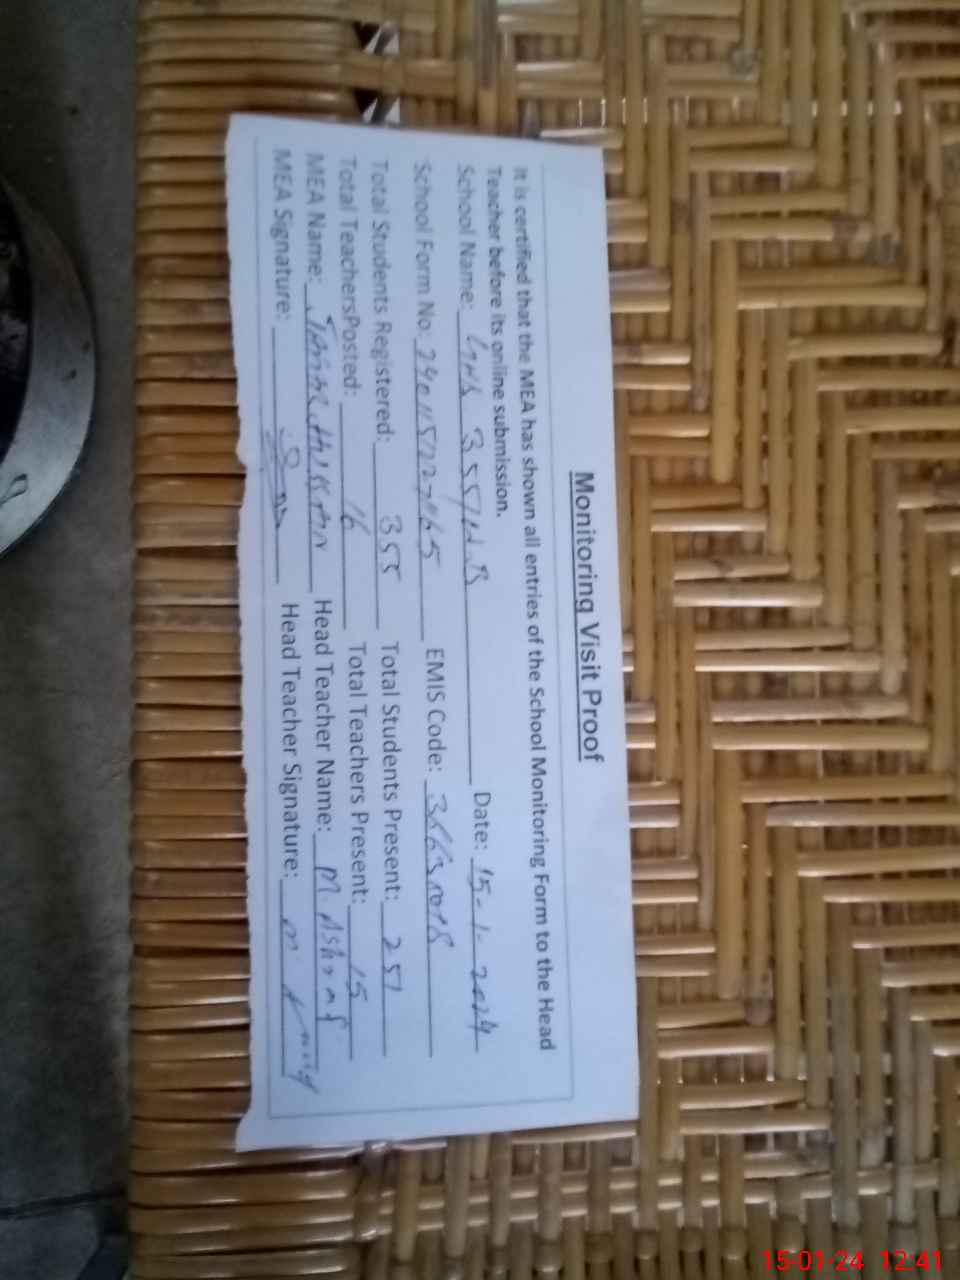 Monitoring Visit Proof
It is certified that the MEA has shown all entries of the School Monitoring Form to the Head
Teacher before its online submission.
School Name: 355/W.B Date: 15-1-2024
School Form No: EMIS Code:
Total Students Registered: 355 Total Students Present: 257
Total TeachersPosted: 16 Total Teachers Present: 15
MEA Name: Head Teacher Name: M. Ashraf
MEA Signature: Head Teacher Signature:
15-01-24 12:41